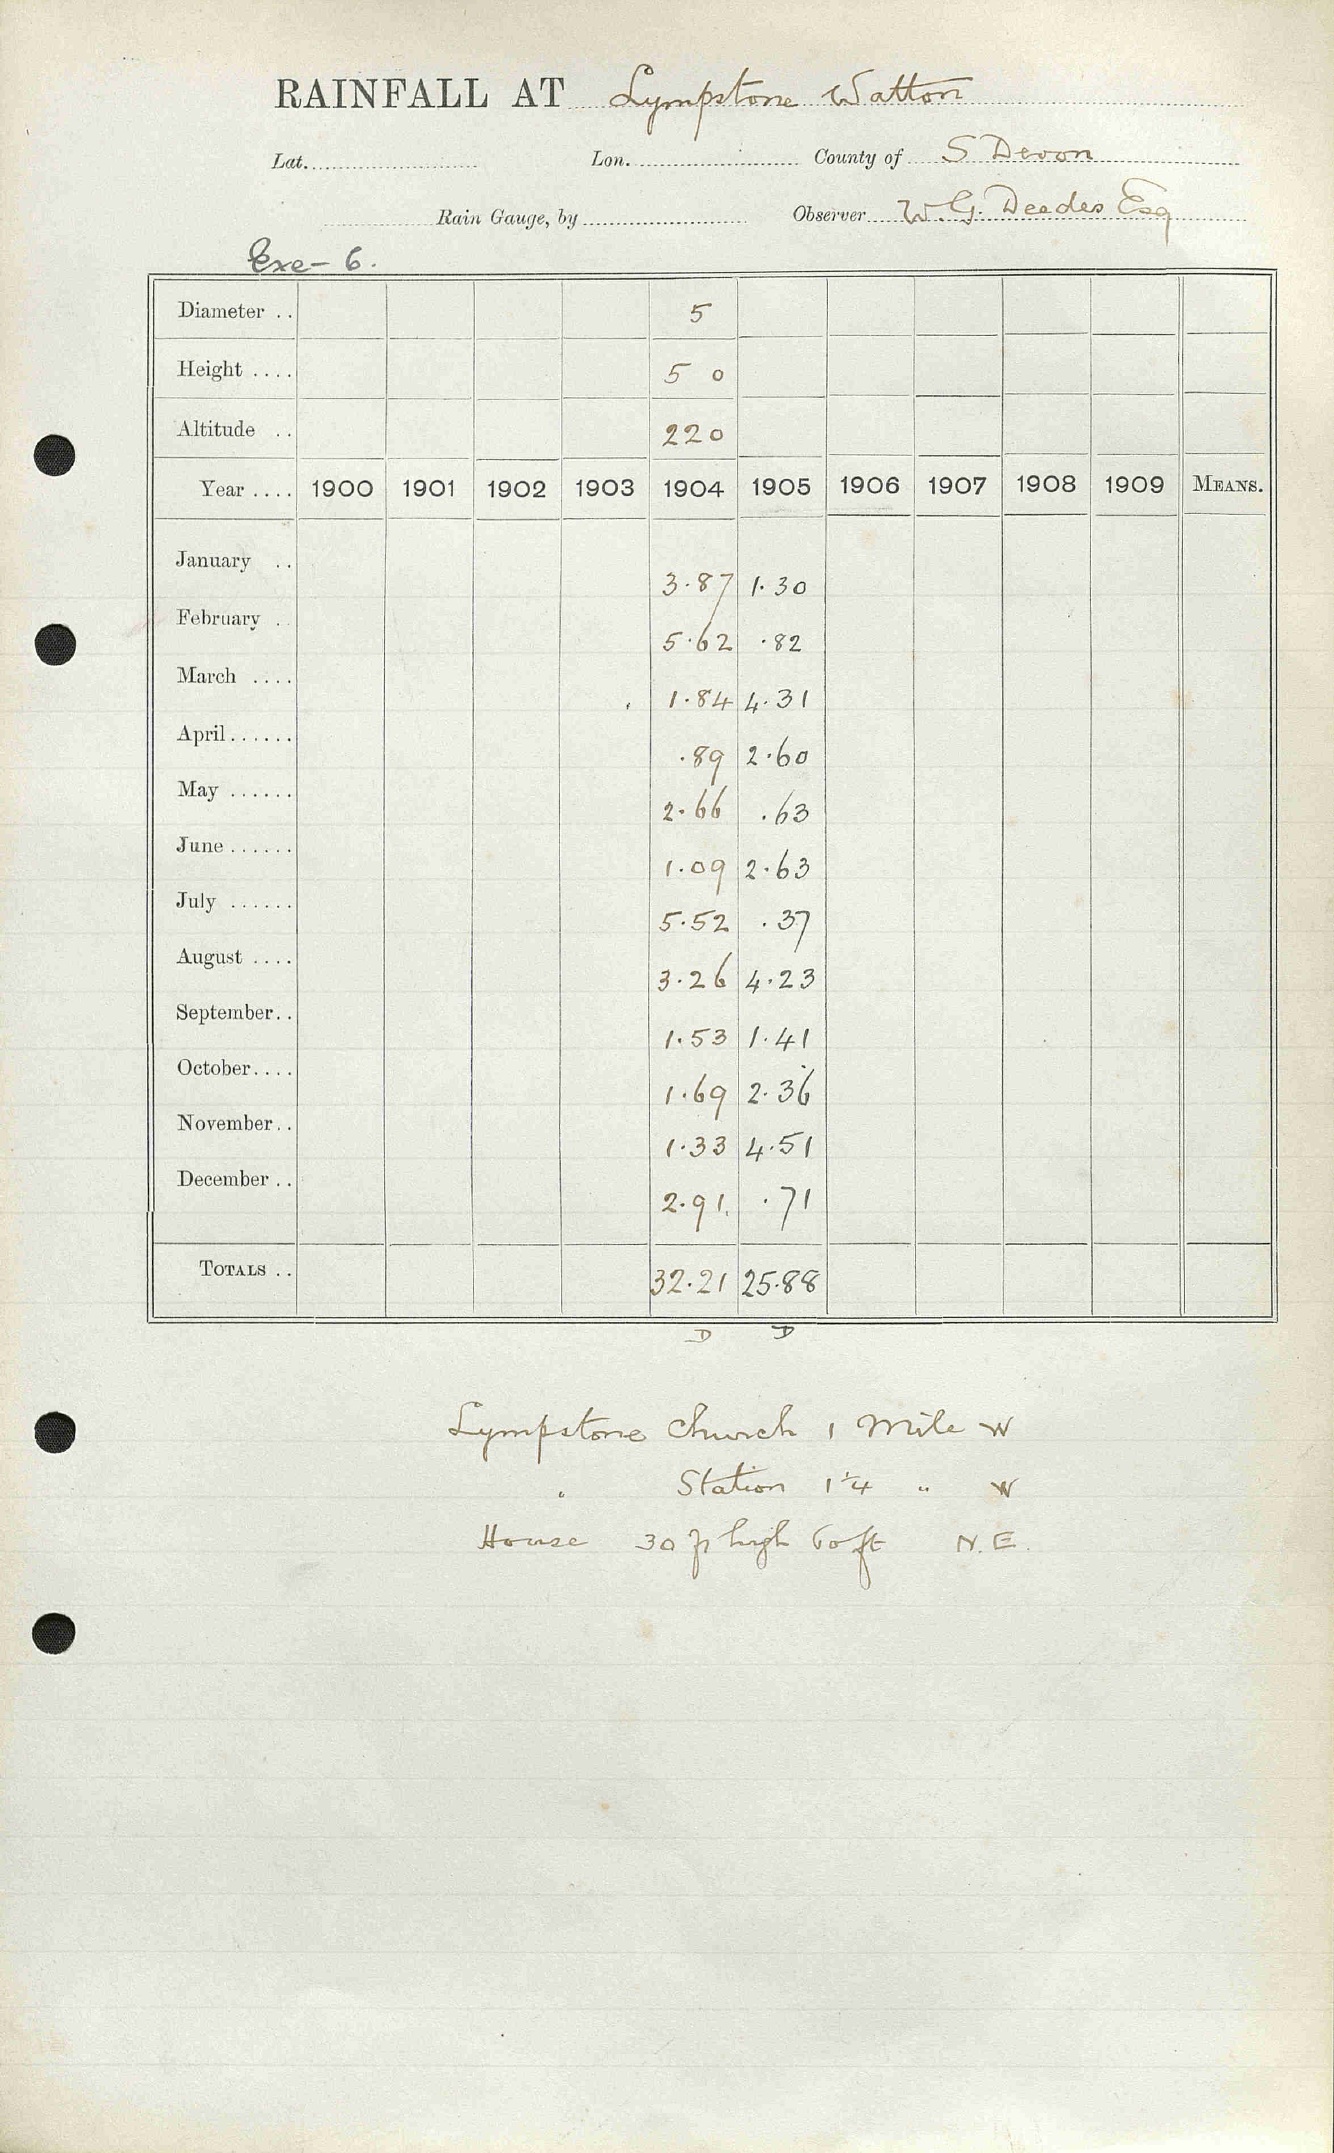 RAINFALL AT Lympstone Watton
Lat. Lon. County of S Devon
Rain Gauge, by Observer W. G. Deedes Esq
Exe - 6.
Diameter .. 5
Height .... 5 0
Altitude .. 220
Year .... 1900 1901 1902 1903 1904 1905 1906 1907 1908 1909 MEANS.
January .. 3.87 1.30
February . 5.62 .82
March .... 1.84 4.31
April...... .89 2.60
May ...... 2.66 .63
June ...... 1.09 2.63
July ...... 5.52 .37
August .... 3.26 4.23
September.. 1.53 1.41
October.... 1.69 2.36
November.. 1.33 4.51
December .. 2.91 .71
TOTALS .. 32.21 25.88
D D
Lympstone Church 1 Mile W
" Station 1¼ " W
House 30 ft high 60 ft N.E.